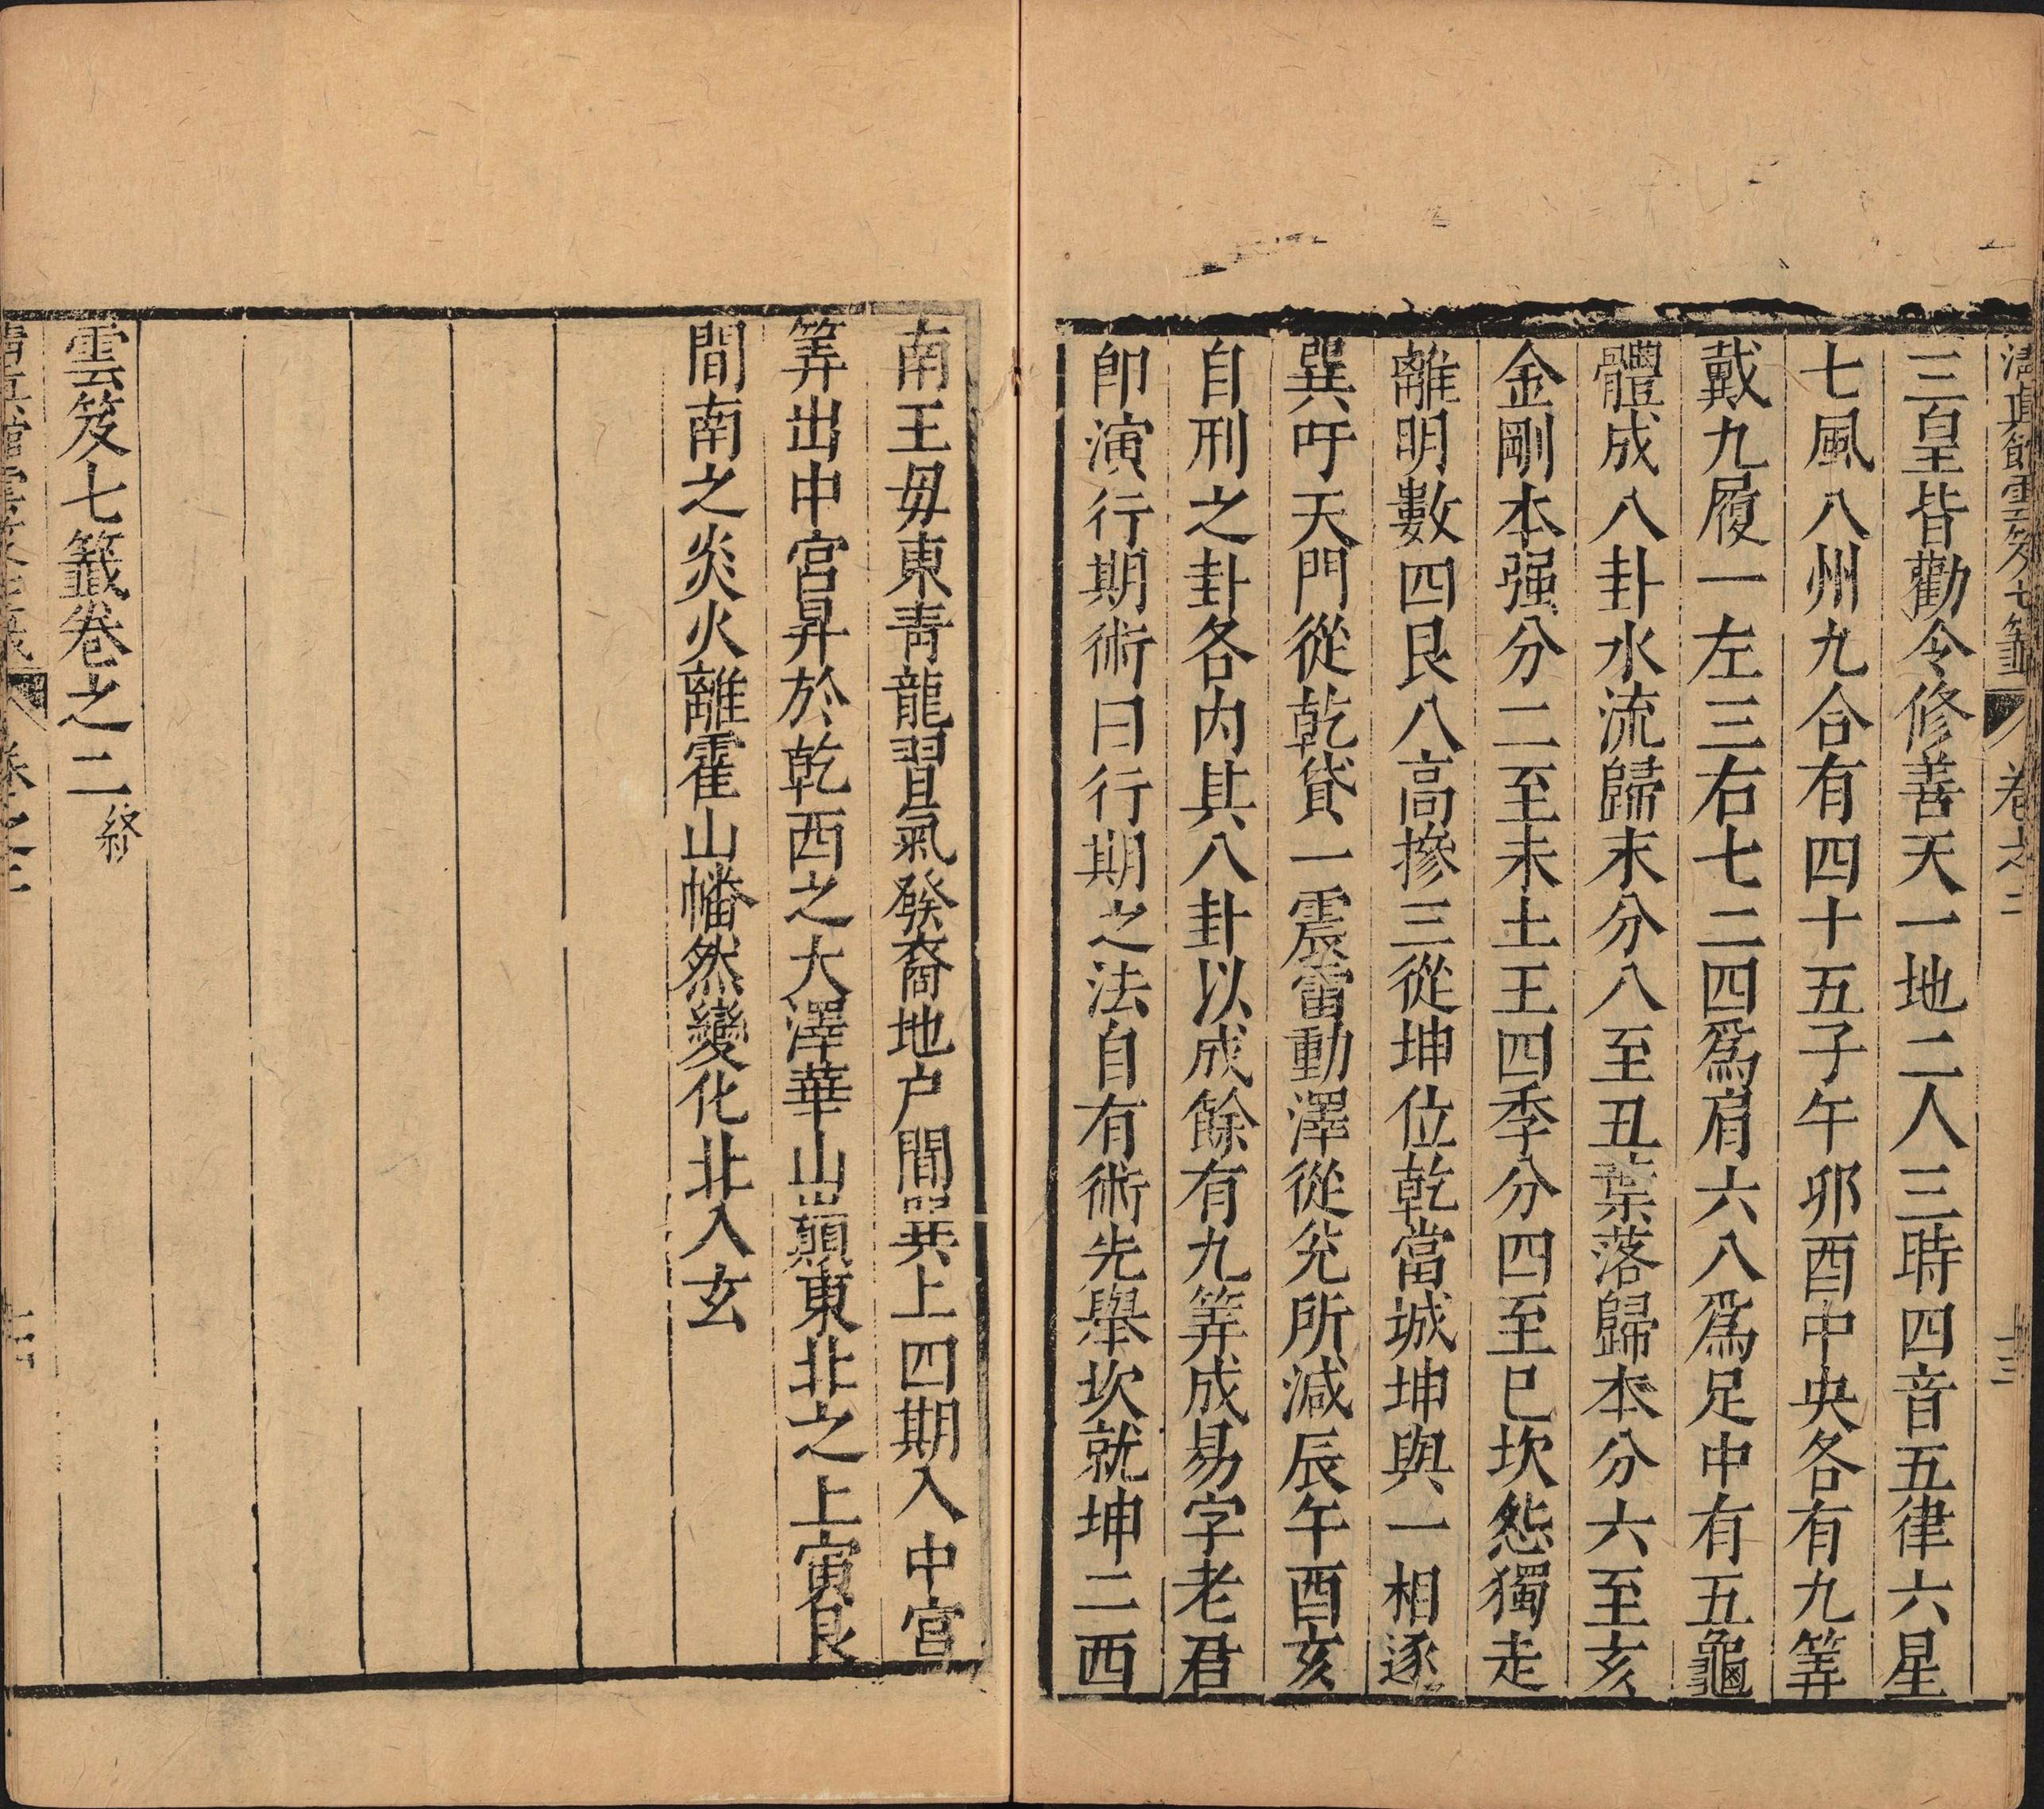 清真館雲笈七籖 卷之二 十三
三皇皆勸令修善天一地二人三時四音五律六星
七風八州九合有四十五子午卯酉中央各有九筭
戴九履一左三右七二四爲肩六八爲足中有五龜
體成八卦水流歸末分八至丑葉落歸本分六至亥
金剛本强分二至未土王四季分四至巳坎怨獨走
離明數四艮八高摻三從坤位乾當城坤與一相逐
巽吁天門從乾貸一震雷動澤從兊所減辰午酉亥
自刑之卦各内其八卦以成餘有九筭成易字老君
即演行期術曰行期之法自有術先舉坎就坤二西
南王毋東青龍習氣發裔地户間巽上四期入中宫
筭出中宫昇於乾西之大澤華山巔東北之上寅艮
間南之炎火離霍山幡然變化北入玄
雲笈七籖卷之二終